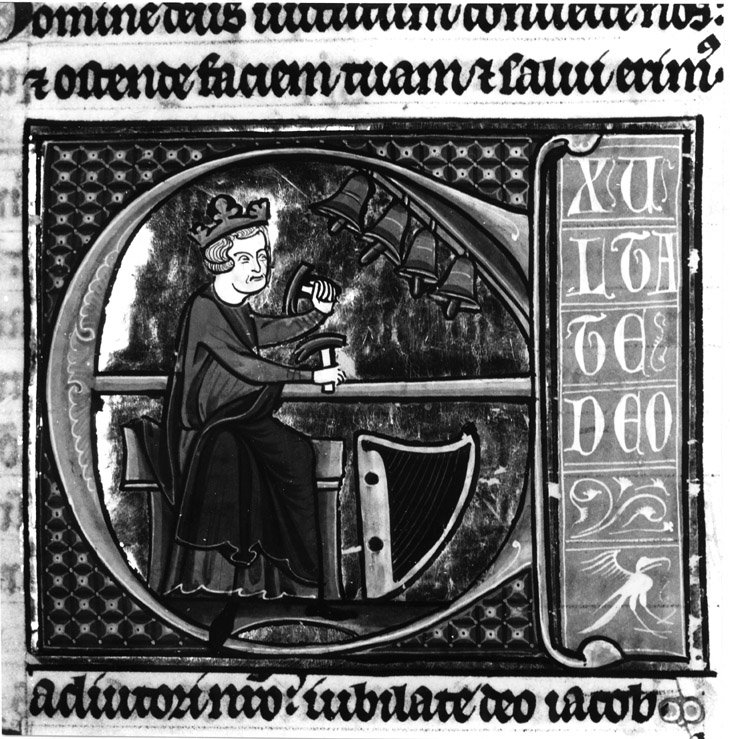 Domine deus uirtutum conuerte nos:
⁊ ostende faciem tuam ⁊ salui erimꝰ.
E
XU
LTA
TE
DEO
adiutori nr̄o: iubilate deo iacob.